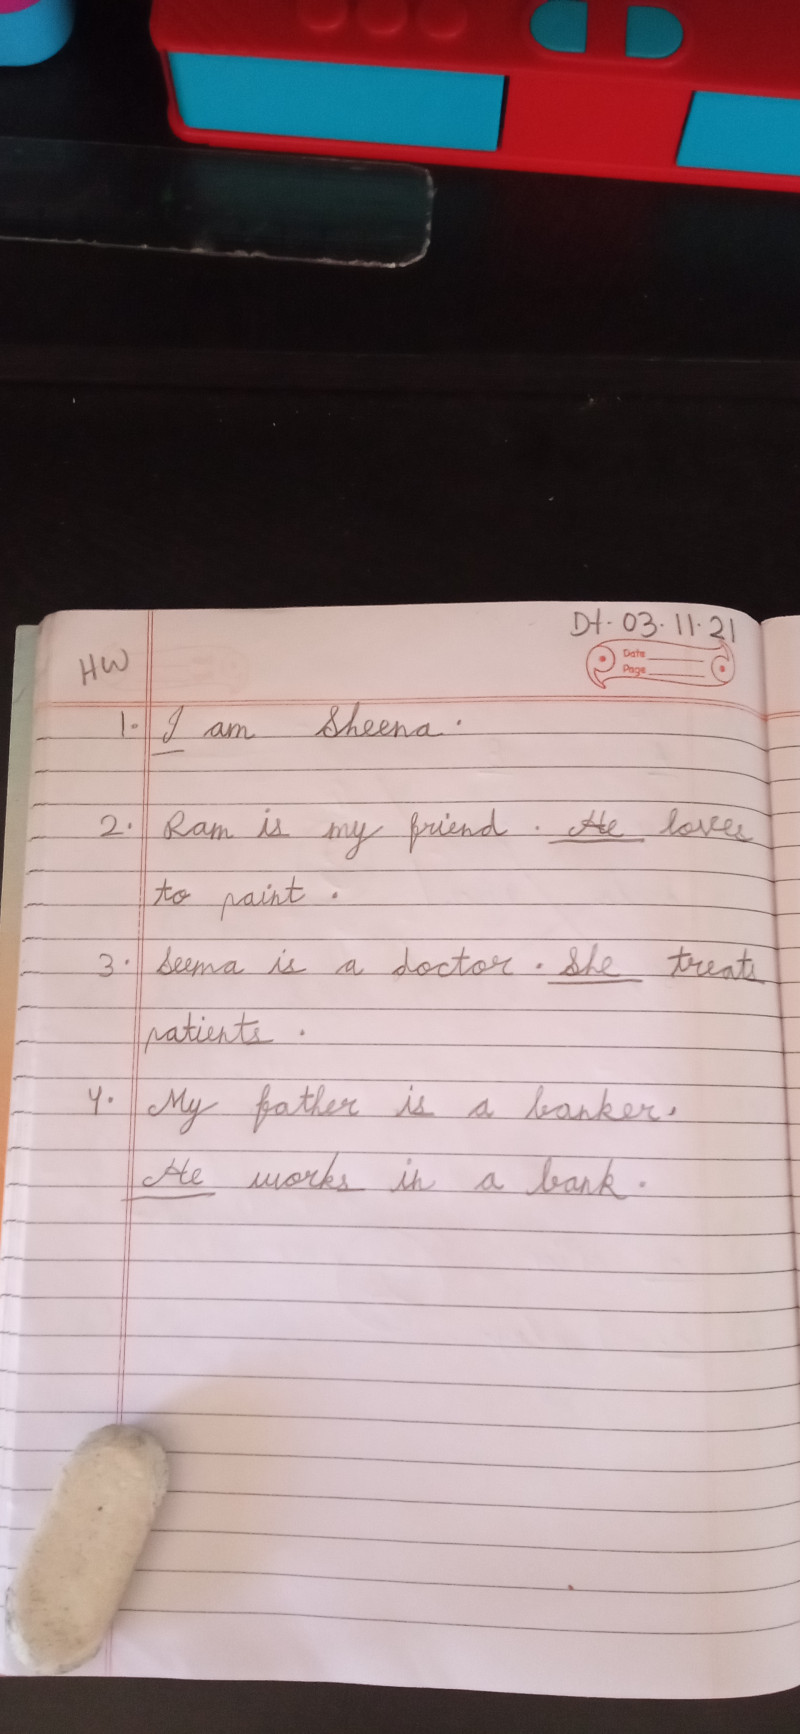 Dt. 03.11.21
HW
Date
Page
1. I am Sheena.
2. Ram is my friend. He loves
to paint.
3. Seema is a doctor. She treats
patients.
4. My father is a banker.
He works in a bank.